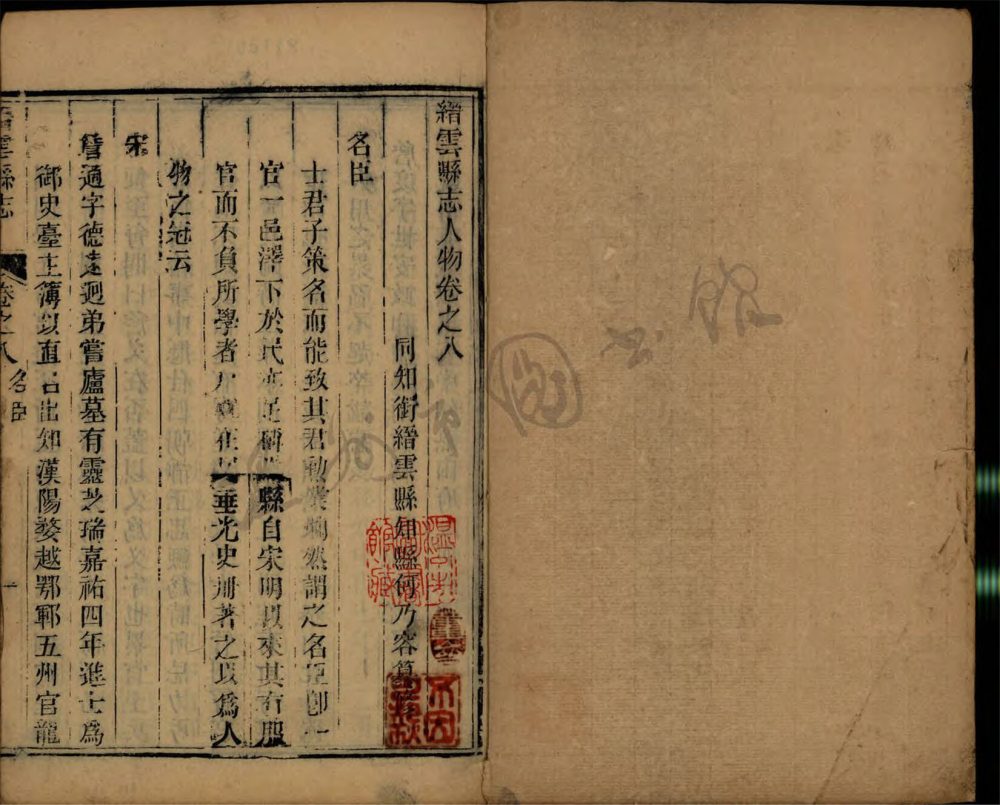 縉雲縣志人物卷之八
同知銜縉雲縣知縣何乃容纂
名臣
士君子策名而能致其君勳業爛然謂之名臣卽一
官一邑澤下於民亦足稱縣自宋明以來其有服
官而不負所學者垂光史册著之以爲人
物之冠云
宋
詹適字德遠迥弟嘗廬墓有靈芝瑞嘉祐四年進士爲
御史臺主簿以直名出知漢陽婺越鄂鄆五州官龍
縉雲縣志
卷之八 名臣
一
圖書館